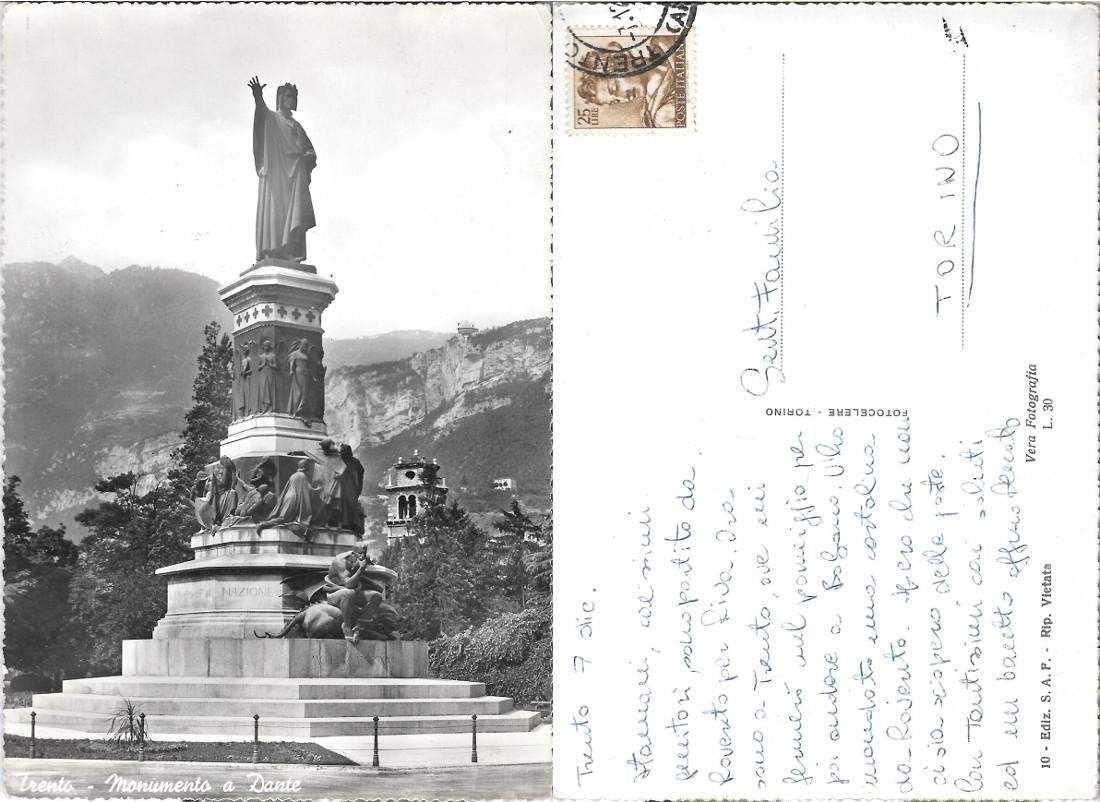 Trento - Monumento a Dante
NAZIONE
25
LIRE
POSTE ITALIANE
TRENTO
Gent. Famiglia
TORINO
FOTOCELERE - TORINO
Trento 7 dic.
Stamani, carissimi
genitori, sono partito da
Rovereto per Riva. Ora
sono a Trento, ove mi
fermerò nel pomeriggio per
poi andare a Bolzano. Vi ho
mandato una cartolina
da Rovereto. Spero che non
ci sia sciopero delle poste.
Con tantissimi cari saluti
ed un bacetto aff.mo Renato
Vera Fotografia
L. 30
10 - Ediz. S. A. F. - Rip. Vietata